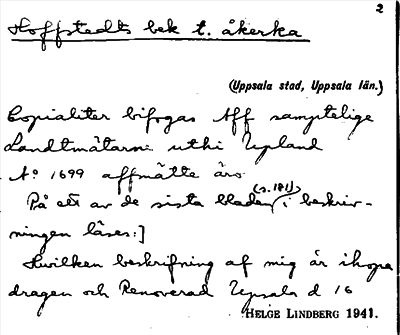 2
Hoffstedts bek t. åkerka
(Uppsala stad, Uppsala län.)
Copialiter bifogas Aff samptelige
Landtmätarne uthi Upland
Aº 1699 affmätte äro
På ett av de sista bladen (s. 181) i beskriv-
ningen läses:]
Hwilken beskrifning af mig är ihopa
dragen och Renoverad Upsala d 16
HELGE LINDBERG 1941.